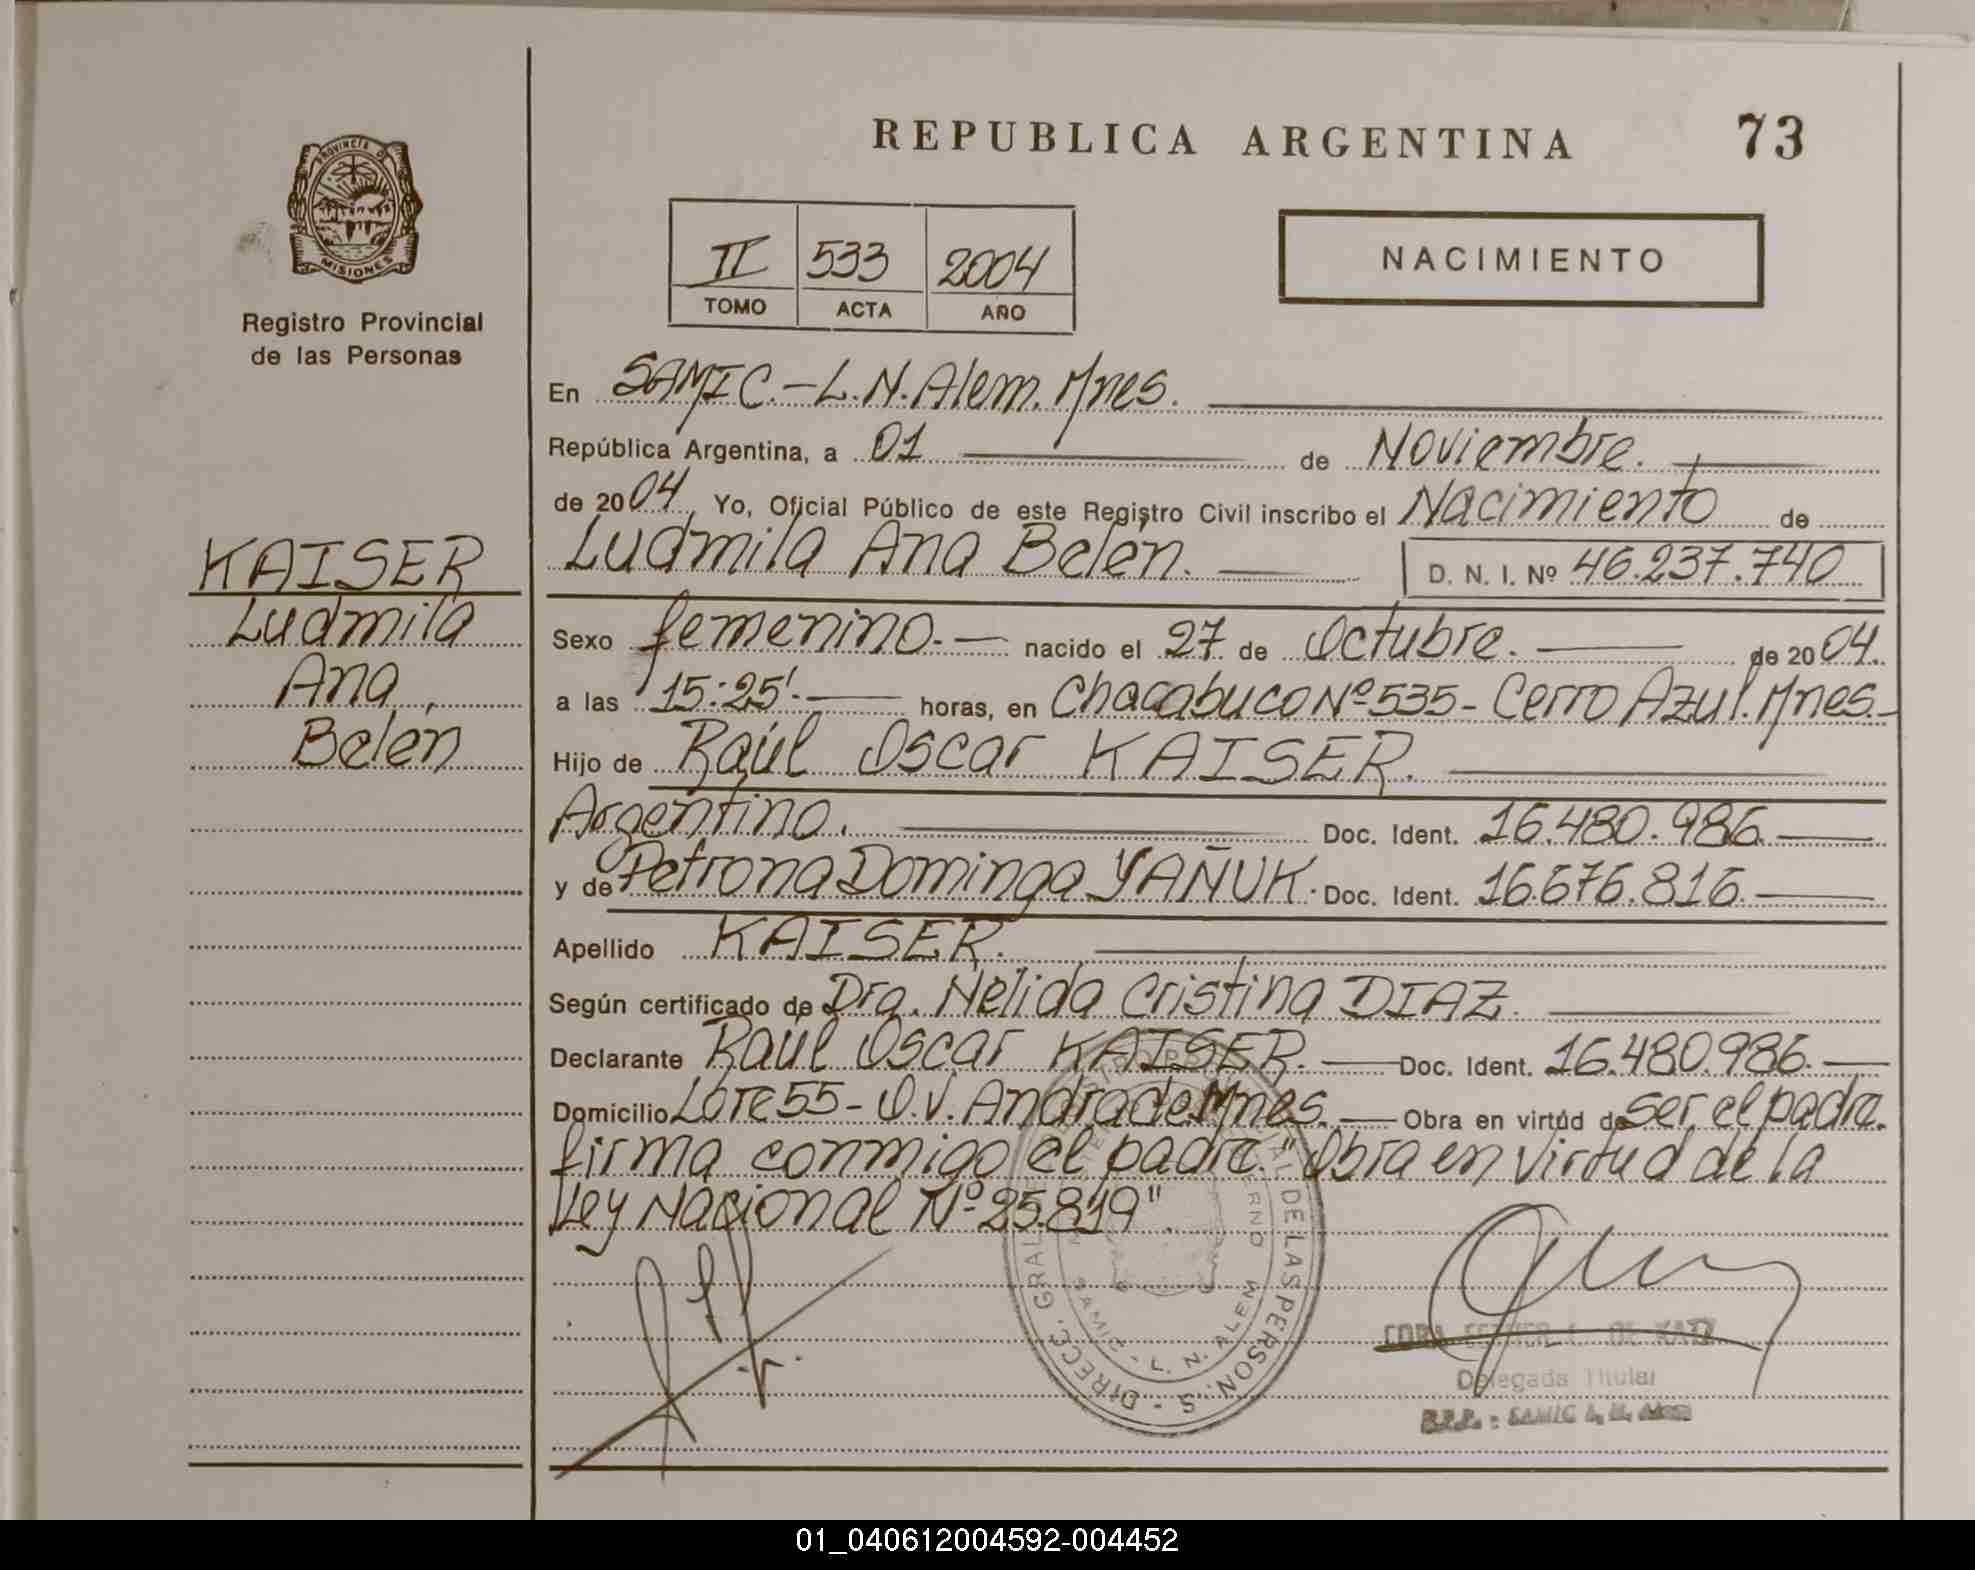 REPUBLICA ARGENTINA
73
PROVINCIA DE
MISIONES
Registro Provincial
de las Personas
II 533 2004
TOMO ACTA AÑO
NACIMIENTO
En SAMIC.-L.N.Alem.Mnes.
República Argentina, a 01 de Noviembre.
de 2004 Yo, Oficial Público de este Registro Civil inscribo el Nacimiento de
Ludmila Ana Belén. D. N. I. Nº 46.237.740
KAISER
Ludmila
Ana
Belén
Sexo femenino.- nacido el 27 de Octubre. de 2004.
a las 15:25'. horas, en Chacabuco Nº 535- Cerro Azul.Mnes.-
Hijo de Raúl Oscar KAISER.
Argentino. Doc. Ident. 16.480.986.
y de Petrona Dominga YAÑUK. Doc. Ident. 16.676.816.
Apellido KAISER.
Según certificado de Dra. Nélida Cristina DIAZ.
Declarante Raúl Oscar KAISER. Doc. Ident. 16.480.986.
Domicilio Lote 55- O.V. Andrade Mnes. Obra en virtud de ser el padre.
firma conmigo el padre. "Obra en virtud de la
Ley Nacional Nº 25.819".
DIRECC. GRAL. DE LAS PERSON. S.
SAMIC - L. N. ALEM
Delegada Titular
SAMIC L. N. Alem
01_040612004592-004452